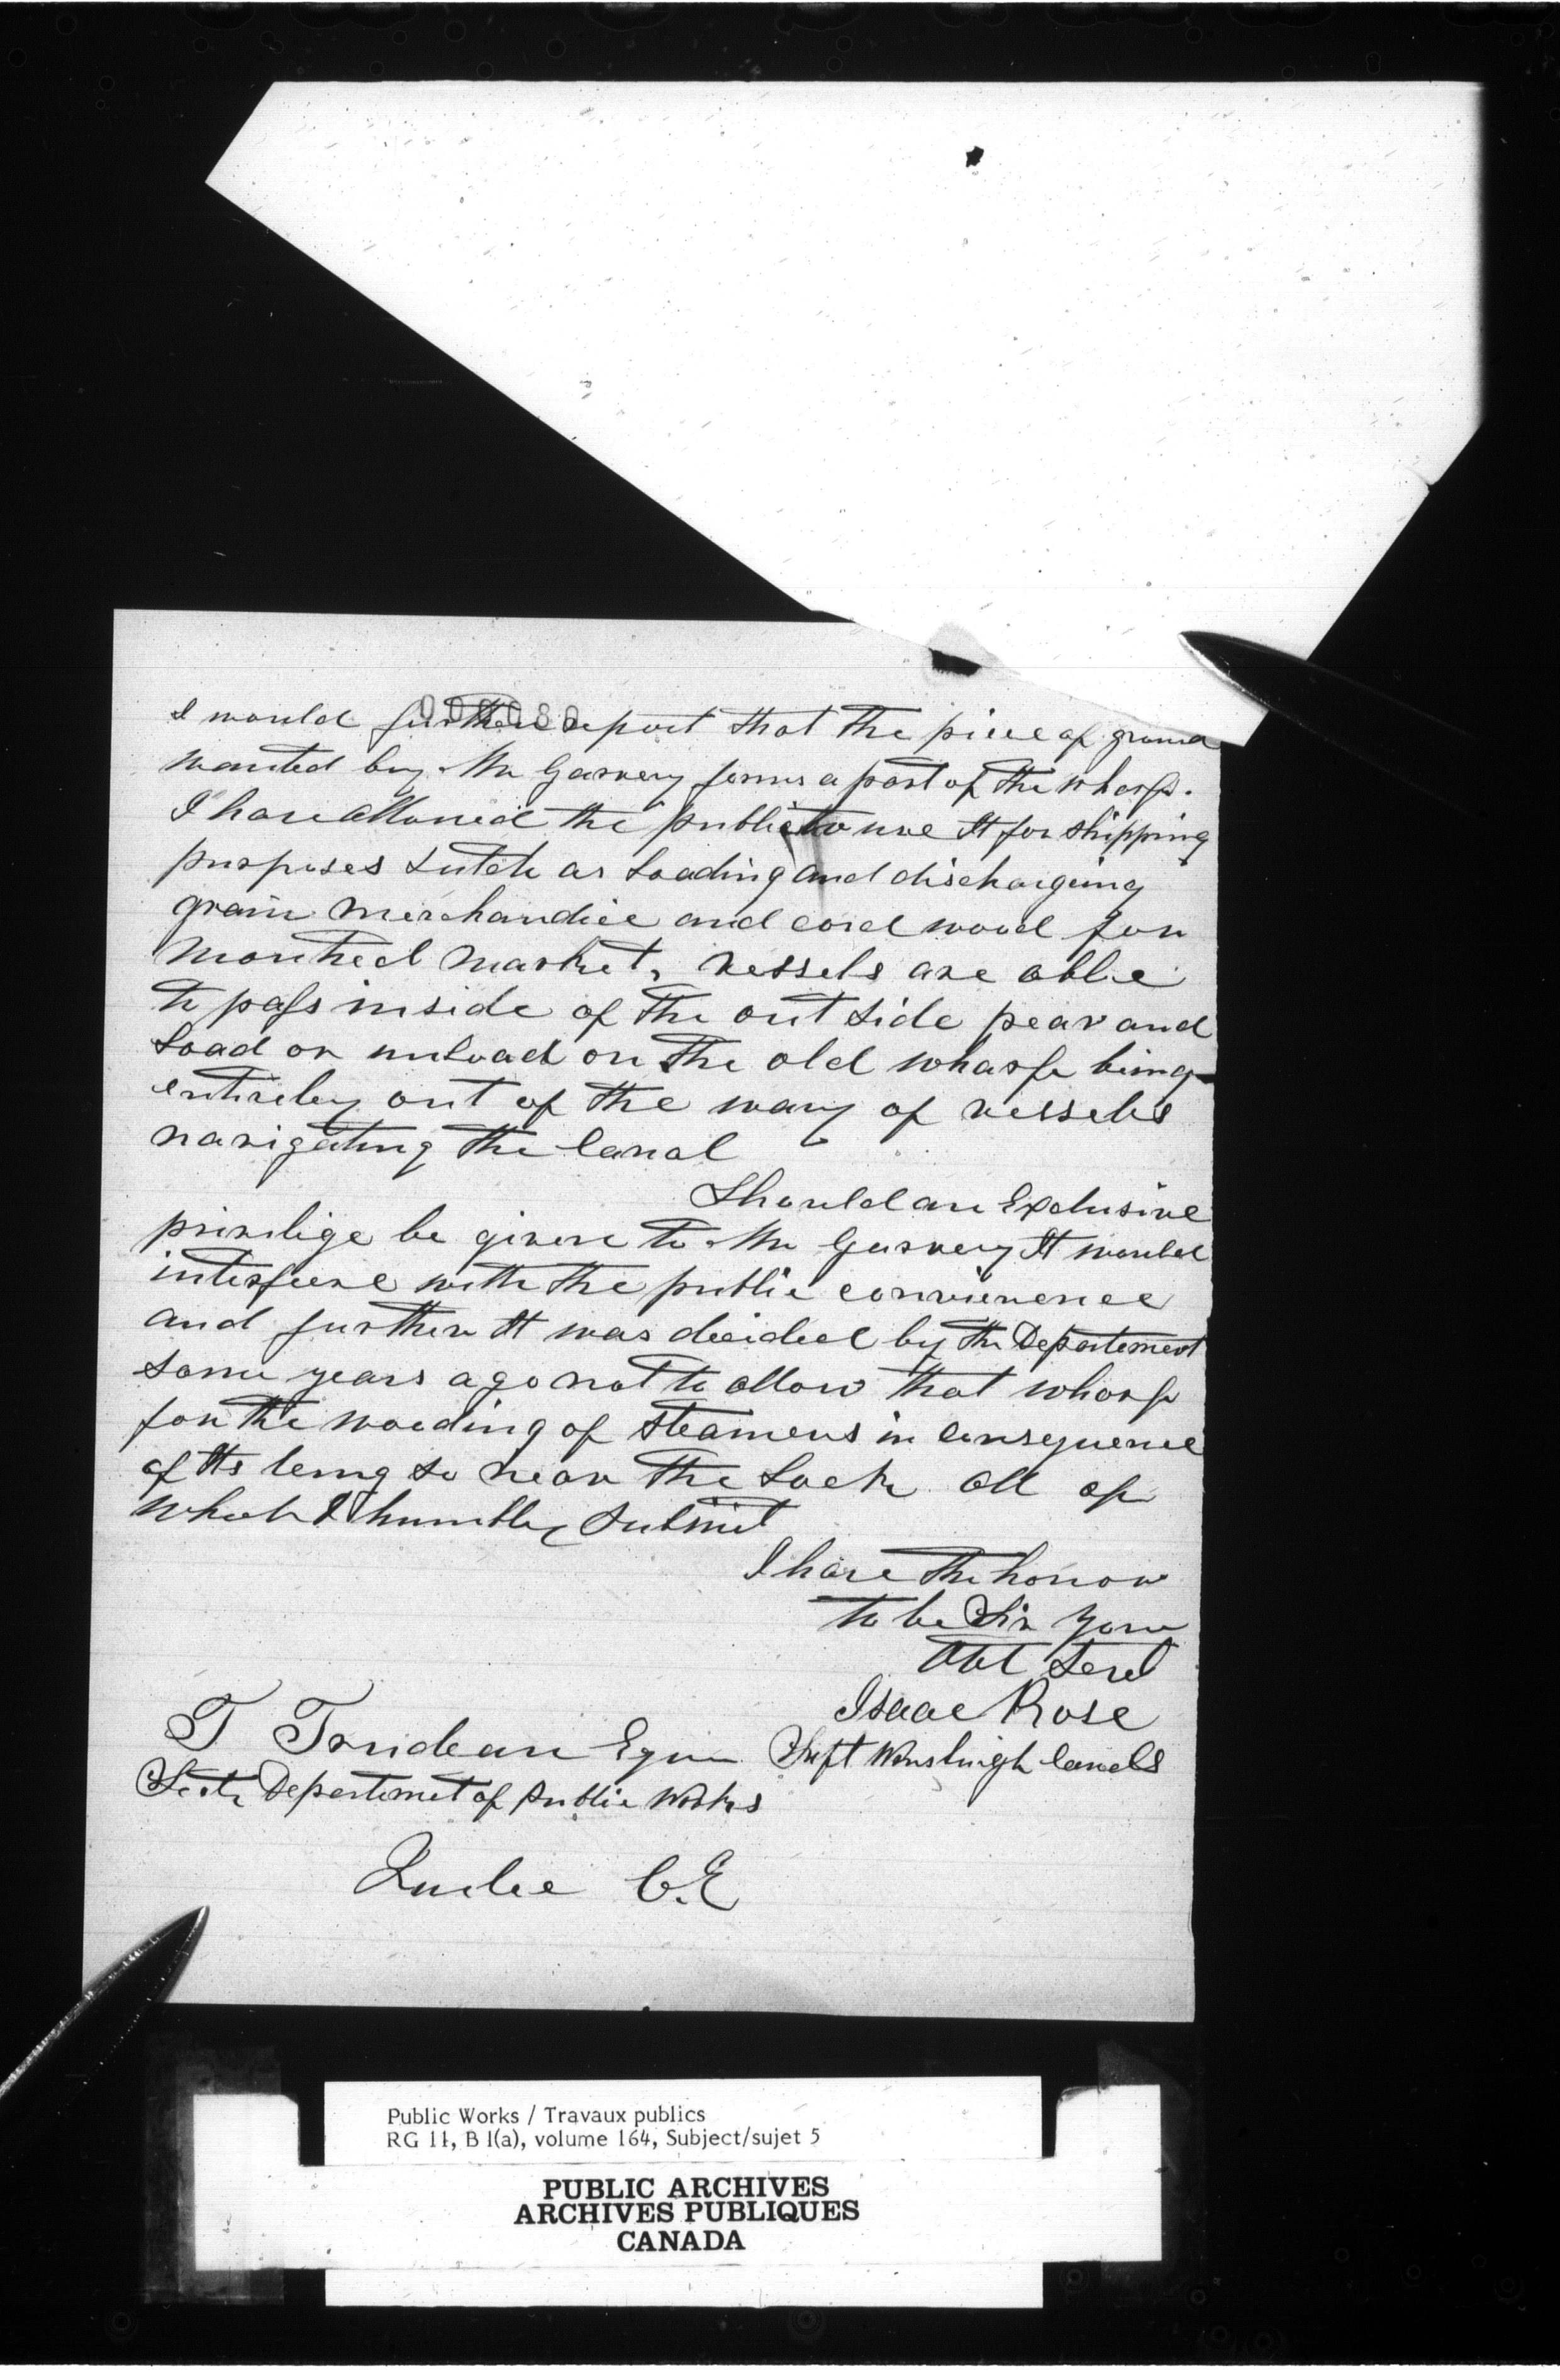 I would further report that the piece of ground
wanted by Mr Garvery forms a part of the wharf.
I have allowed the public to use It for shipping
purposes sutch as loading and dischargeing
grain merchandice and cord wood for
Montreal Market, vessels are able
to pass inside of the out side pear and
load or unload on the old wharfe being
entireley out of the way of vessels
navigating the Canal
Should an Exclusive
privilige be given to Mr Garvery It would
interfeere with the public convienence
and further It was decided by the Departement
some years ago not to allow that wharfe
for the wooding of Steamers in Consequence
of Its being so near the Lock all of
which I humbley Submit
I have the honor
to be Sir your
Obt Servt
Isaac Rose
T Trudeau Eqr Supt Wmsburgh Canals
Secty Departemet of Public Works
Quebec C.E
Public Works / Travaux publics
RG 11, B 1(a), volume 164, Subject/sujet 5
PUBLIC ARCHIVES
ARCHIVES PUBLIQUES
CANADA